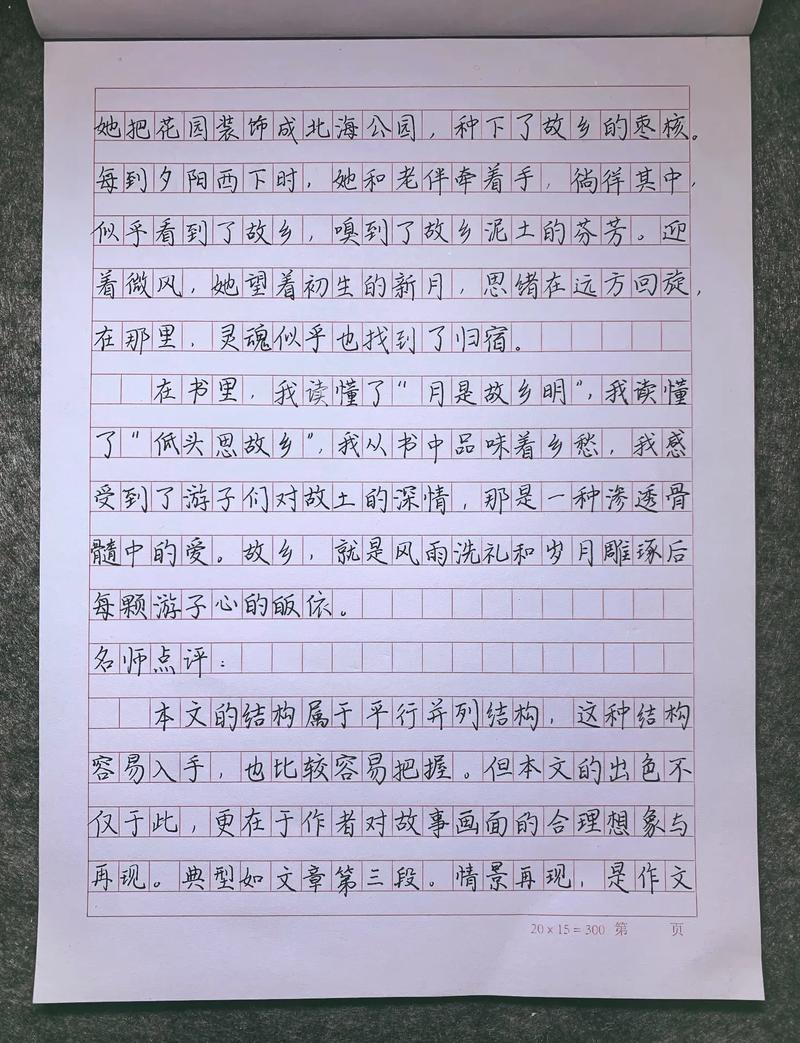 她把花园装饰成北海公园，种下了故乡的枣核。
每到夕阳西下时，她和老伴牵着手，徜徉其中，
似乎看到了故乡，嗅到了故乡泥土的芬芳。迎
着微风，她望着初生的新月，思绪在远方回旋，
在那里，灵魂似乎也找到了归宿。
在书里，我读懂了“月是故乡明”，我读懂
了“低头思故乡”，我从书中品味着乡愁，我感
受到了游子们对故土的深情，那是一种渗透骨
髓中的爱。故乡，就是风雨洗礼和岁月雕琢后
每颗游子心的皈依。
名师点评：
本文的结构属于平行并列结构，这种结构
容易入手，也比较容易把握。但本文的出色不
仅于此，更在于作者对故事画面的合理想象与
再现。典型如文章第三段。情景再现，是作文
20×15=300 第 页